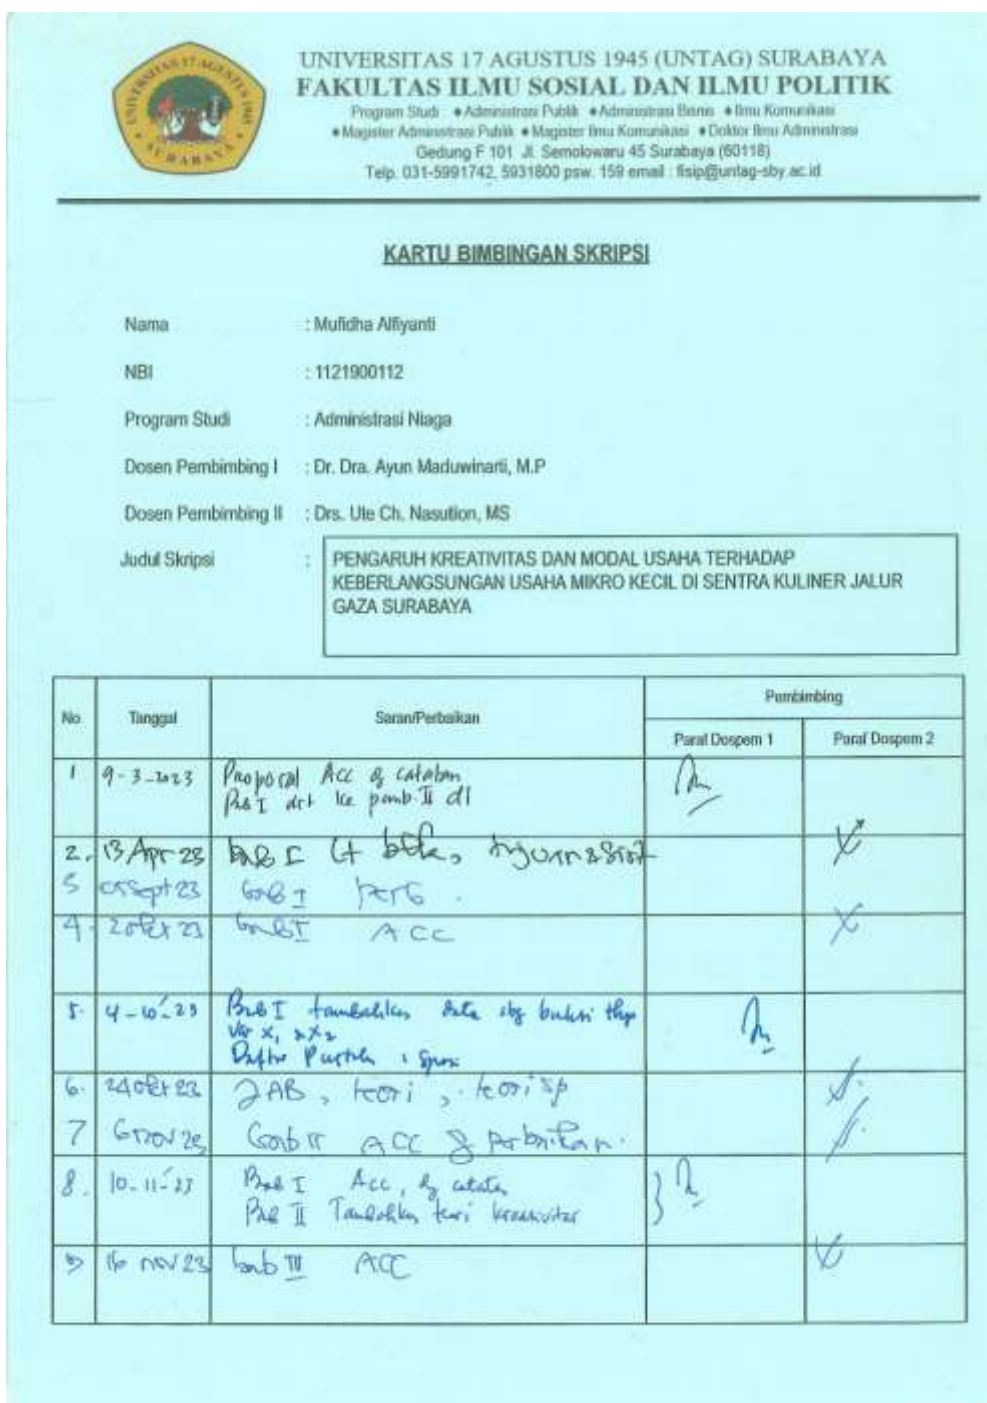 UNIVERSITAS 17 AGUSTUS 1945 (UNTAG) SURABAYA
FAKULTAS ILMU SOSIAL DAN ILMU POLITIK
Program Studi : ♦Administrasi Publik ♦Administrasi Bisnis ♦Ilmu Komunikasi
♦Magister Administrasi Publik ♦Magister Ilmu Komunikasi ♦Doktor Ilmu Administrasi
Gedung F 101 Jl. Semolowaru 45 Surabaya (60118)
Telp. 031-5991742, 5931800 psw. 159 email : fisip@untag-sby.ac.id
UNIVERSITAS 17 AGUSTUS 1945
SURABAYA
KARTU BIMBINGAN SKRIPSI
Nama : Mufidha Alfiyanti
NBI : 1121900112
Program Studi : Administrasi Niaga
Dosen Pembimbing I : Dr. Dra. Ayun Maduwinarti, M.P
Dosen Pembimbing II : Drs. Ute Ch. Nasution, MS
Judul Skripsi : PENGARUH KREATIVITAS DAN MODAL USAHA TERHADAP
KEBERLANGSUNGAN USAHA MIKRO KECIL DI SENTRA KULINER JALUR
GAZA SURABAYA
No Tanggal Saran/Perbaikan Pembimbing
Paraf Dospem 1 Paraf Dospem 2
1 9-3-2023 Proposal Acc dg catatan
Bab I ke pemb. II
2. 13 Apr 23 bab I
Sept 23 bab I
4. 2 Okt 23 bab I ACC
5. 4-10-'23 Bab I tambahkan data
var X1 X2
Daftar Pustaka
6. 24 Okt 23 JAB, teori, teori
7 6 nov 23 bab II ACC Perbaikan.
8. 10-11-'23 Bab I Acc, dg catatan
Bab II Tambahkan teori kreativitas
16 nov 23 bab III ACC